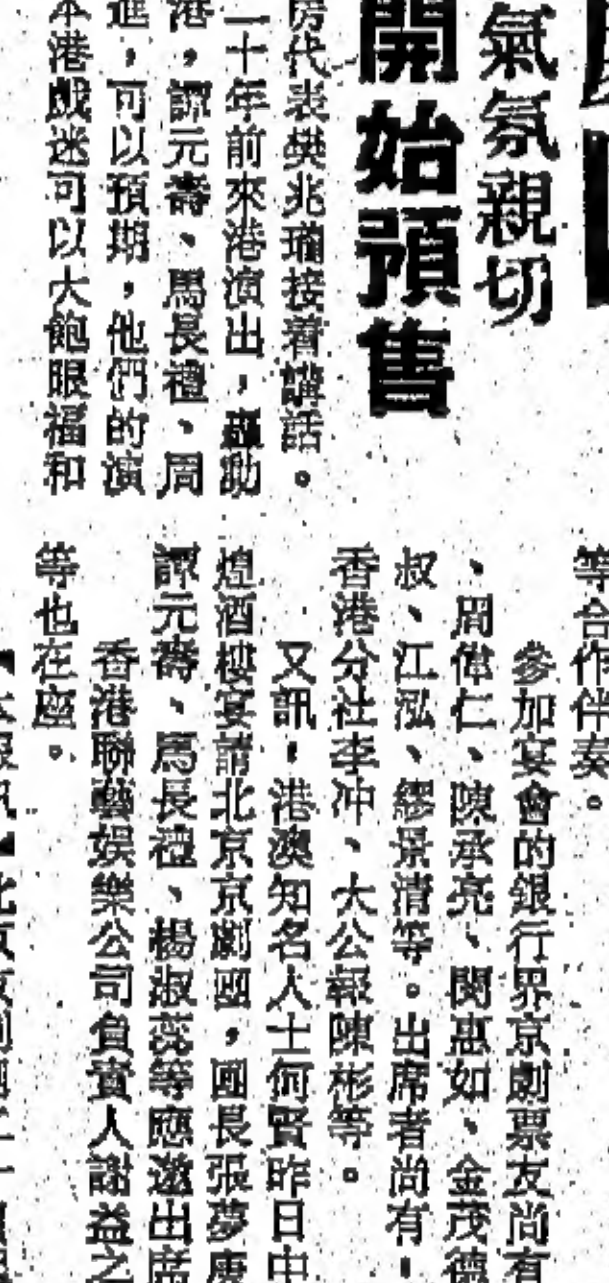 氣氛親切
開始預售
房代表樊兆瓏接着講話。
二十年前來港演出,
港,譚元壽、馬長禮、周
進,可以預期,他們的演
本港戲迷可以大飽眼福和
等合作伴奏。
參加宴會的銀行界京劇票友尚有
、周偉仁、陳承亮、閔惠如、金茂德
叔、江泓、繆景清等。出席者尚有,
香港分社李冲、大公報陳彬等。
又訊,港澳知名人士何賢昨日中
煌酒樓宴請北京京劇團,團長張夢庚
譚元壽、馬長禮、楊淑蕊等應邀出席
香港聯藝娛樂公司負責人謝益之
等也在座。